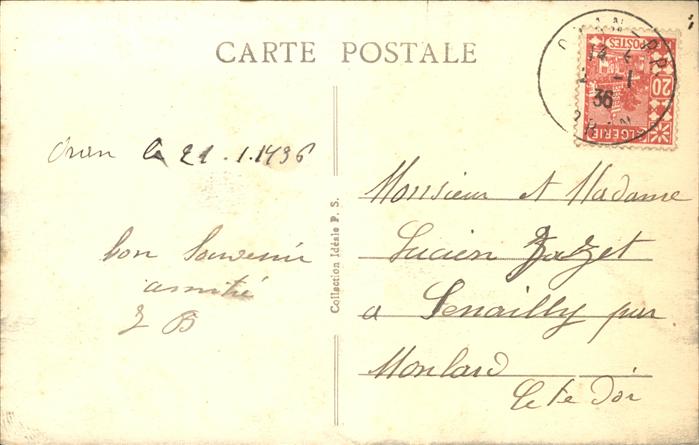 CARTE POSTALE
POSTES
20
ALGERIE
14
-1
36
Oran le 21.1.1936
bon Souvenir
amitié
J B
Collection Idéale P. S.
Monsieur et Madame
Lucien
a Senailly par
Monbard
Cote dor